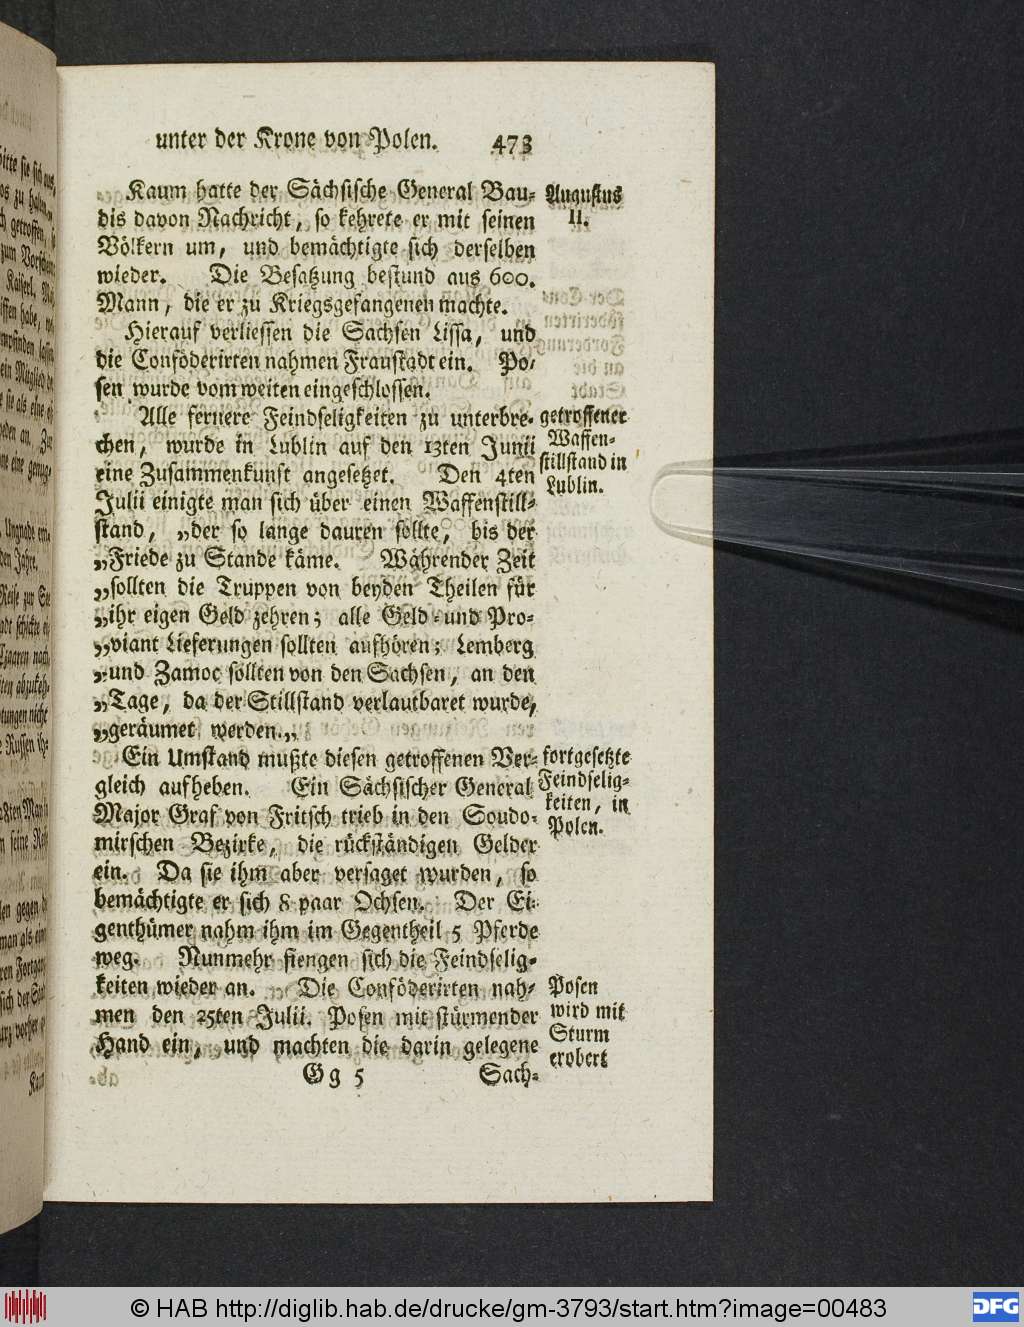 unter der Krone von Polen. 473
Kaum hatte der Sächsische General Bau-
dis davon Nachricht, so kehrete er mit seinen
Völkern um, und bemächtigte sich derselben
wieder. Die Besatzung bestund aus 600.
Mann, die er zu Kriegsgefangenen machte.
Hierauf verliessen die Sachsen Lissa, und
die Conföderirten nahmen Fraustadt ein. Po-
sen wurde vom weiten eingeschlossen.
Alle fernere Feindseligkeiten zu unterbre-
chen, wurde in Lublin auf den 13ten Junii
eine Zusammenkunft angesetzet. Den 4ten
Julii einigte man sich über einen Waffenstill-
stand, „der so lange dauren sollte, bis der
„Friede zu Stande käme. Währender Zeit
„sollten die Truppen von beyden Theilen für
„ihr eigen Geld zehren; alle Geld- und Pro-
„viant Lieferungen sollten aufhören; Lemberg
„und Zamoc sollten von den Sachsen, an den
„Tage, da der Stillstand verlautbaret wurde,
„geräumet werden.„
Ein Umstand mußte diesen getroffenen Ver-
gleich aufheben. Ein Sächsischer General
Major Graf von Fritsch trieb in den Soudo-
mirschen Bezirke, die rückständigen Gelder
ein. Da sie ihm aber versaget wurden, so
bemächtigte er sich 8 paar Ochsen. Der Ei-
genthümer nahm ihm im Gegentheil 5 Pferde
weg. Nunmehr fiengen sich die Feindselig-
keiten wieder an. Die Conföderirten nah-
men den 25ten Julii. Posen mit stürmender
Hand ein, und machten die darin gelegene
Gg 5 Sach-
Augustus
II.
getroffener
Waffen-
stillstand in
Lublin.
fortgesetzte
Feindselig-
keiten, in
Polen.
Posen
wird mit
Sturm
erobert
© HAB http://diglib.hab.de/drucke/gm-3793/start.htm?image=00483
DFG